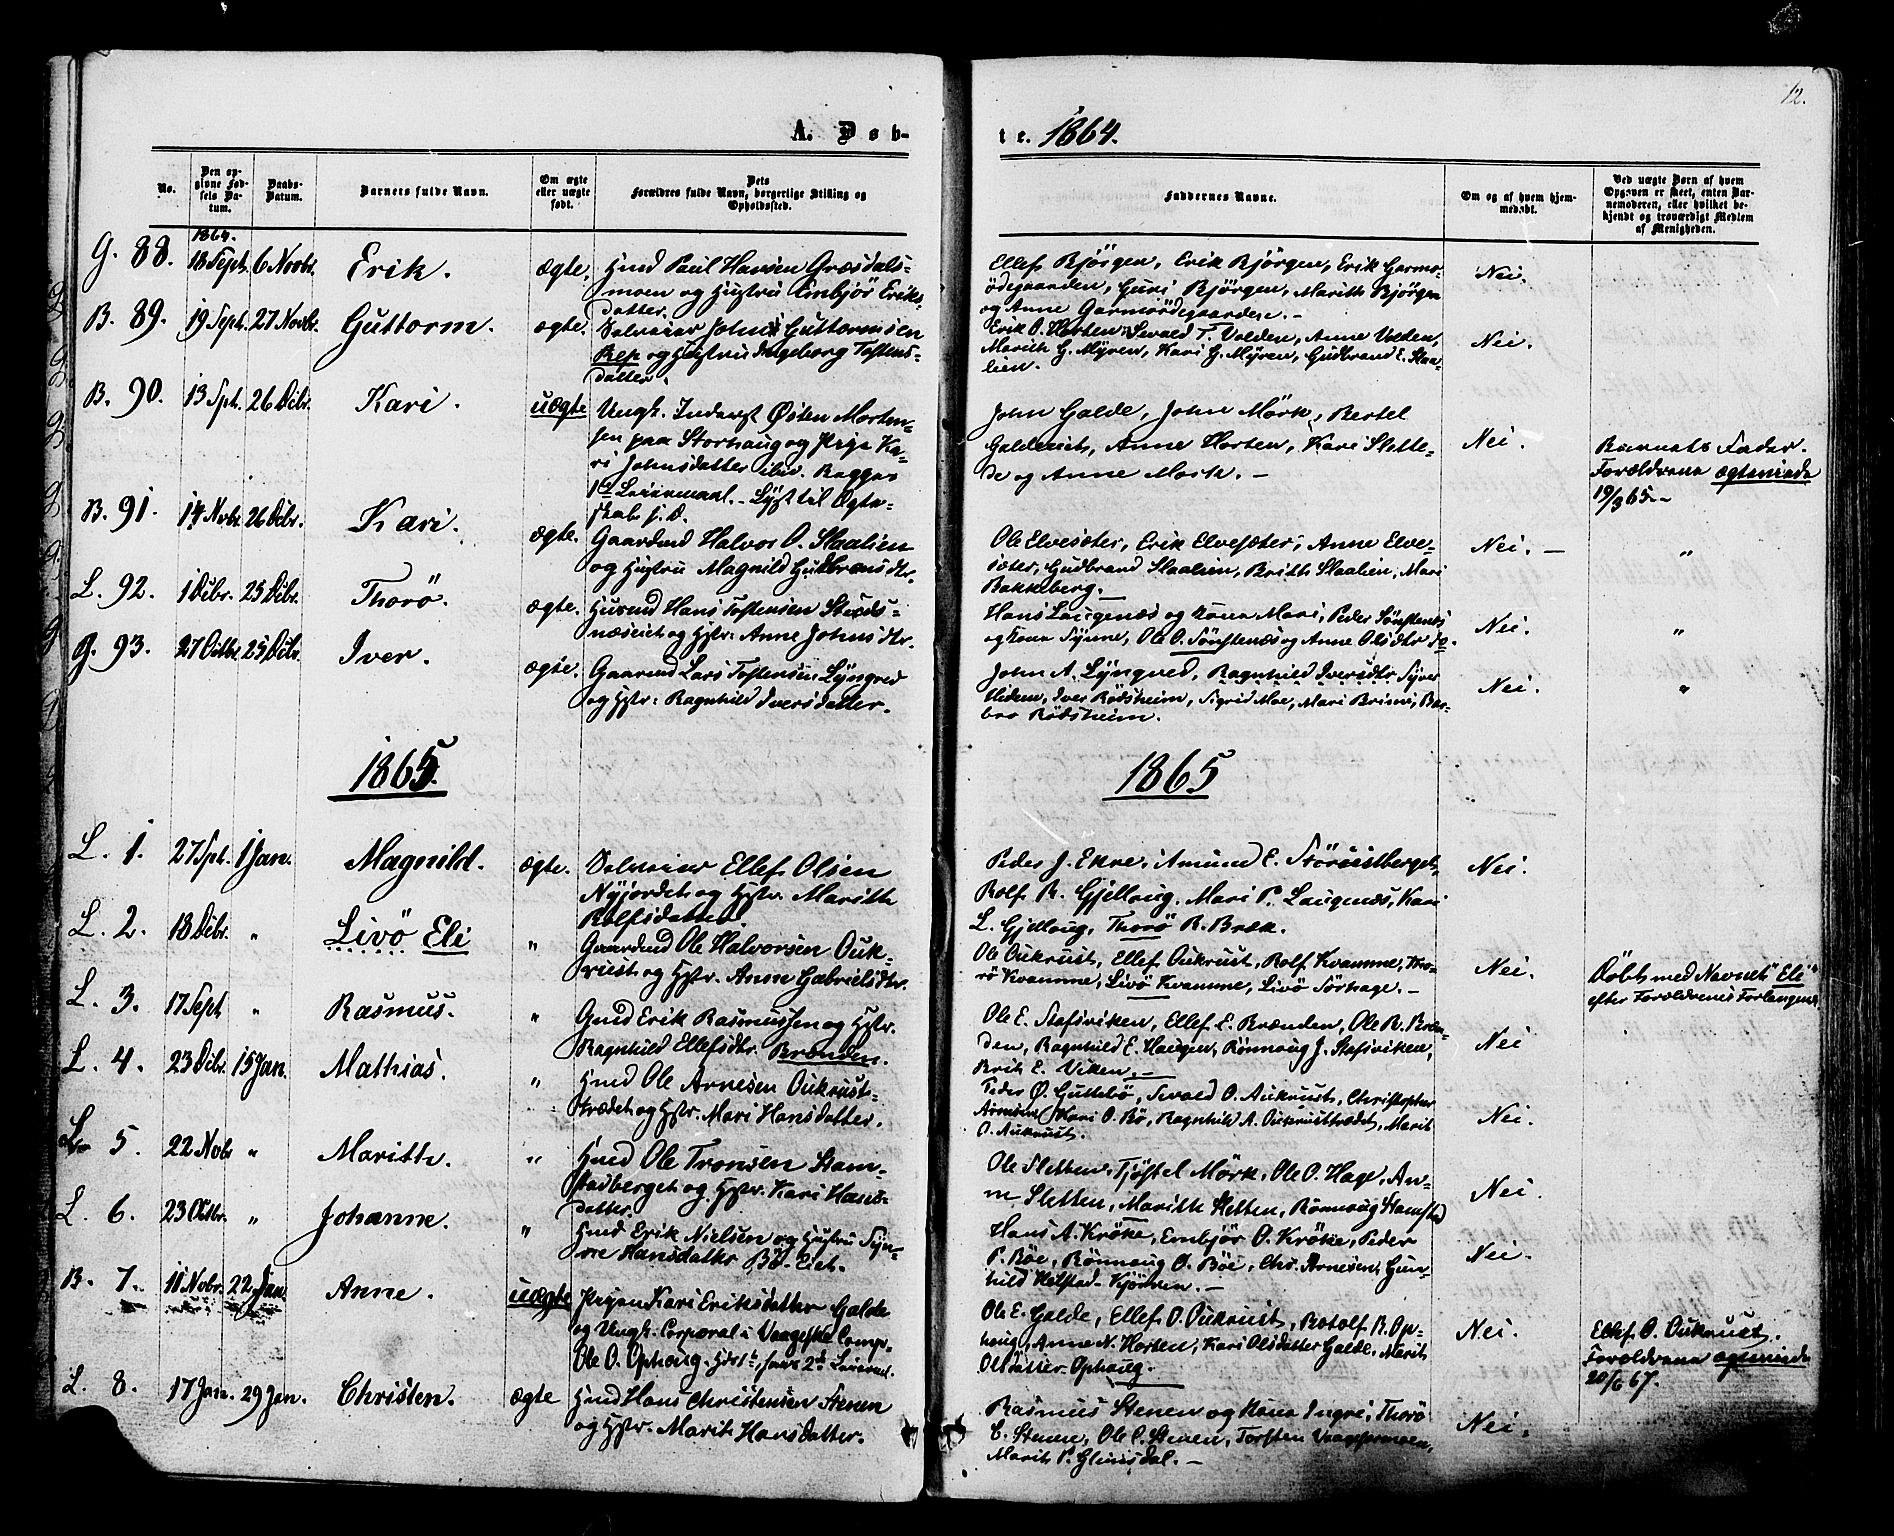 12.
A. Døb-
te. 1864.
No.
Den op-
givne Fød-
sels Da-
tum.
Daabs-
Datum.
Barnets fulde Navn.
Om ægte
eller uægte
født.
Dets
Forældres fulde Navn, borgerlige Stilling og
Opholdssted.
Faddernes Navne.
Om og af hvem hjem-
medøbt.
Ved uægte Børn af hvem
Opgaven er skeet, enten Bar-
nemoderen, eller hvilket be-
kjendt og troværdigt Medlem
af Menigheden.
1864.
G. 88. 18 Sept. 6 Novbr. Erik. ægte.
Hmd Paul Hansen Græsdals-
moen og Hustru Embjør Eriks-
datter.
Ellef Bjørgen, Erik Bjørgen, Erik Garmo-
ødegaarden, Guri Bjørgen, Marith Bjørgen
og Anne Garmoødegaarden. -
Nei.
B. 89. 19 Sept. 27 Novbr. Guttorm. ægte.
Selveier John Guttormsen
Rep og Hustru Ingeborg Tostens-
datter.
Erik O. Horten, Sevald T. Volden, Anne Volden,
Marith G. Myren, Kari G. Myren, Gudbrand E. Slaa-
lien.
Nei.
B. 90. 13 Spt. 26 Dcbr. Kari. uægte
Ungk. Inderst Østen Morten-
sen paa Storhaug og Pige Ka-
ri Johnsdatter ibid. Begges
1ste Leiermaal. - Lyst til Ægte-
skab s. D.
John Galde, John Mörk, Bertel
Galdeeiet, Anne Horten, Kari Slette-
de og Anne Mork. -
Nei.
Barnets Fader.
Forældrene ægteviede
19/3 65. -
B. 91. 14 Novbr. 26 Dcbr. Kari. ægte.
Gaardmd Halvor O. Slaalien
og Hustru Magnild Gudbrandsdtr.
Ole Elvesæter, Erik Elvesæter, Anne Elve-
sæter, Gudbrand Slaalien, Brith Slaalien, Mari
Bakkeberg.
Nei. - "
L. 92. 1 Dcbr. 25 Dcbr. Thorö. ægte.
Husmd Hans Tostensen Sünds-
næseiet og Hstr. Anne Johnsdtr.
Hans Laugenæs og Kone Mari, Peder Sönstenæs
og Kone Synne, Ole O. Sönstenæs og Anne Olsdtr do.
Nei. "
G. 93. 27 Octbr. 25 Dcbr. Iver. ægte.
Gaardmd Lars Tostensen Lyngved
og Hstr: Ragnhild Iversdatter.
John A. Lyngved, Ragnhild Iversdtr, Syver
Hidem, Iver Rödsheim, Sigrid Moe, Mari Brimi, Bar-
bro Rödsheim.
Nei. "
1865.
1865
L. 1. 27 Spt. 1 Jan. Magnild. ægte.
Selveier Ellef Olsen
Nyjordet og Hstr. Marith
Rolfsdatter.
Peder J. Ekre, Amund E. Störvistberget,
Rolf R. Gjellaug, Mari P. Laugenæs, Kari
L. Gjellaug, Thorö R. Bræk.
Nei.
L. 2. 18 Dcbr. " Livö Eli "
Gaardmd Ole Halvorsen Ouk-
rust og Hstr. Anne Gabrielsdtr.
Ole Oukrust, Ellef Oukrust, Rolf Kvamme, Tho-
rö Kvamme, Livö Kvamme, Livö Sörhage. -
Nei
Döbt med Navnet "Eli"
efter Forældrenes Forlangende
L. 3. 17 Sept " Rasmus. "
Gmd Erik Rasmussen og Hstr.
Ragnhild Ellefsdtr. Brænden.
Ole E. Stafsviken, Ellef E. Brænden, Ole R. Bræn-
den, Ragnhild E. Haugen, Rönnaug J. Stafsviken,
Brit E. Viken. -
Nei
L. 4. 23 Dcbr. 15 Jan. Mathias. "
Hmd Ole Arnesen Oukrust-
trædet og Hstr. Mari Hansdatter.
Peder Ø. Guttebö, Sevald O. Aukrust, Christopher
Arnesen, Mari O. Bö, Ragnhild A. Oukrusttrædet, Marit
O. Aukrust.
Nei.
L. 5. 22 Novbr " Marith. "
Hmd Ole Tronsen Stam-
stadberget og Hstr. Kari Hans-
datter.
Ole Sletten, Tjöstel Mörk, Ole O. Hage, An-
ne Sletten, Marith Sletten, Rönnaug Stamstad
Nei.
L. 6. 23 Octbr. " Johanne. "
Hmd Erik Nielsen og Hustru Syn-
nve Hansdatter Bö-Eiet.
Hans A. Kröke, Embjör O. Kröke, Peder
P. Böe, Rönnaug O. Böe, Chr. Arnesen, Gun-
hild Helstad-Kjörren. -
Nei.
B. 7. 11 Novbr. 22 Jan. Anne. uægte
Pigen Kari Eriksdatter Galde
og Ungk. Corporal i Vaageske Comp.
Ole O. Ophaug. Hds 1ste, hans 2det Leierm.
Ole E. Galde, Ellef O. Oukrust, Botolf B. Op-
haug, Anne N. Horten, Kari Olsdatter Galde, Marit
Olsdatter Ophaug.
Nei.
Ellef O. Oukrust.
Forældrene ægteviede
20/6 67.
L. 8. 17 Jan. 29 Jan. Christen. ægte
Hmd Hans Christensen Stenen
og Hstr. Marit Hansdatter.
Rasmus Stenen og Kone Ingri, Thorö
C. Stenen, Ole C. Stenen, Torsten Vaagsmoen,
Marit P. Glimsdal. -
Nei.